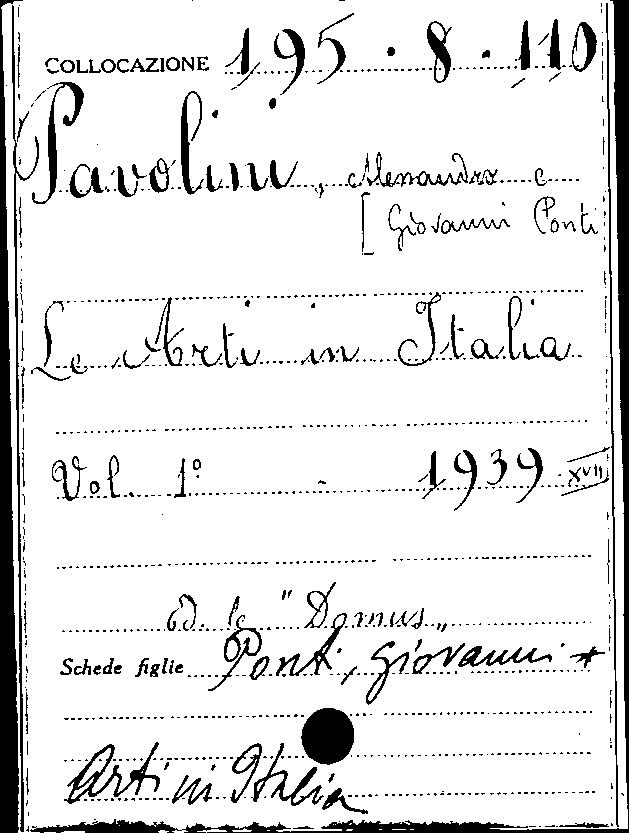 COLLOCAZIONE 195 · 8 · 110
Pavolini, Alessandro e
[ Giovanni Ponti
Le Arti in Italia
Vol. 1° - 1939 XVII
Ed. le "Domus„
Schede figlie Ponti, Giovanni *
Arti in Italia